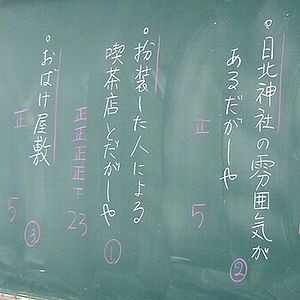 •日北神社の雰囲気が
あるだがしや
正 5 ②
•扮装した人による
喫茶店とだがしや
正正正正下 23 ①
•おばけ屋敷
正 5 ③